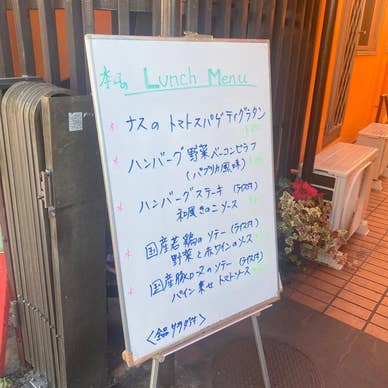 本日 Lunch Menu
* ナスの トマトスパゲティグラタン
* ハンバーグ 野菜ベーコンピラフ
(パプリカ風味)
* ハンバーグステーキ (ライス付)
和風きのこソース
* 国産若鶏のソテー (ライス付)
野菜と赤ワインのソース
* 国産豚ロースのソテー (ライス付)
パイン乗せ トマトソース